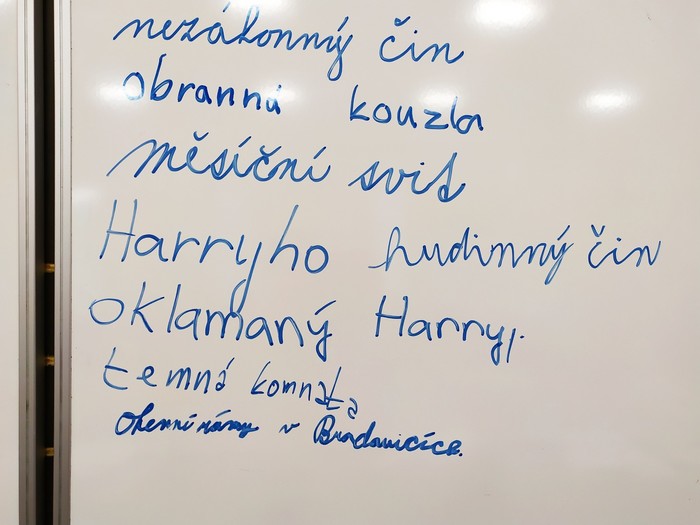 nezákonný čin
obranná kouzla
měsíční svit
Harryho hudinný čin
oklamaný Harry.
temná komnata
v Bradavicích.